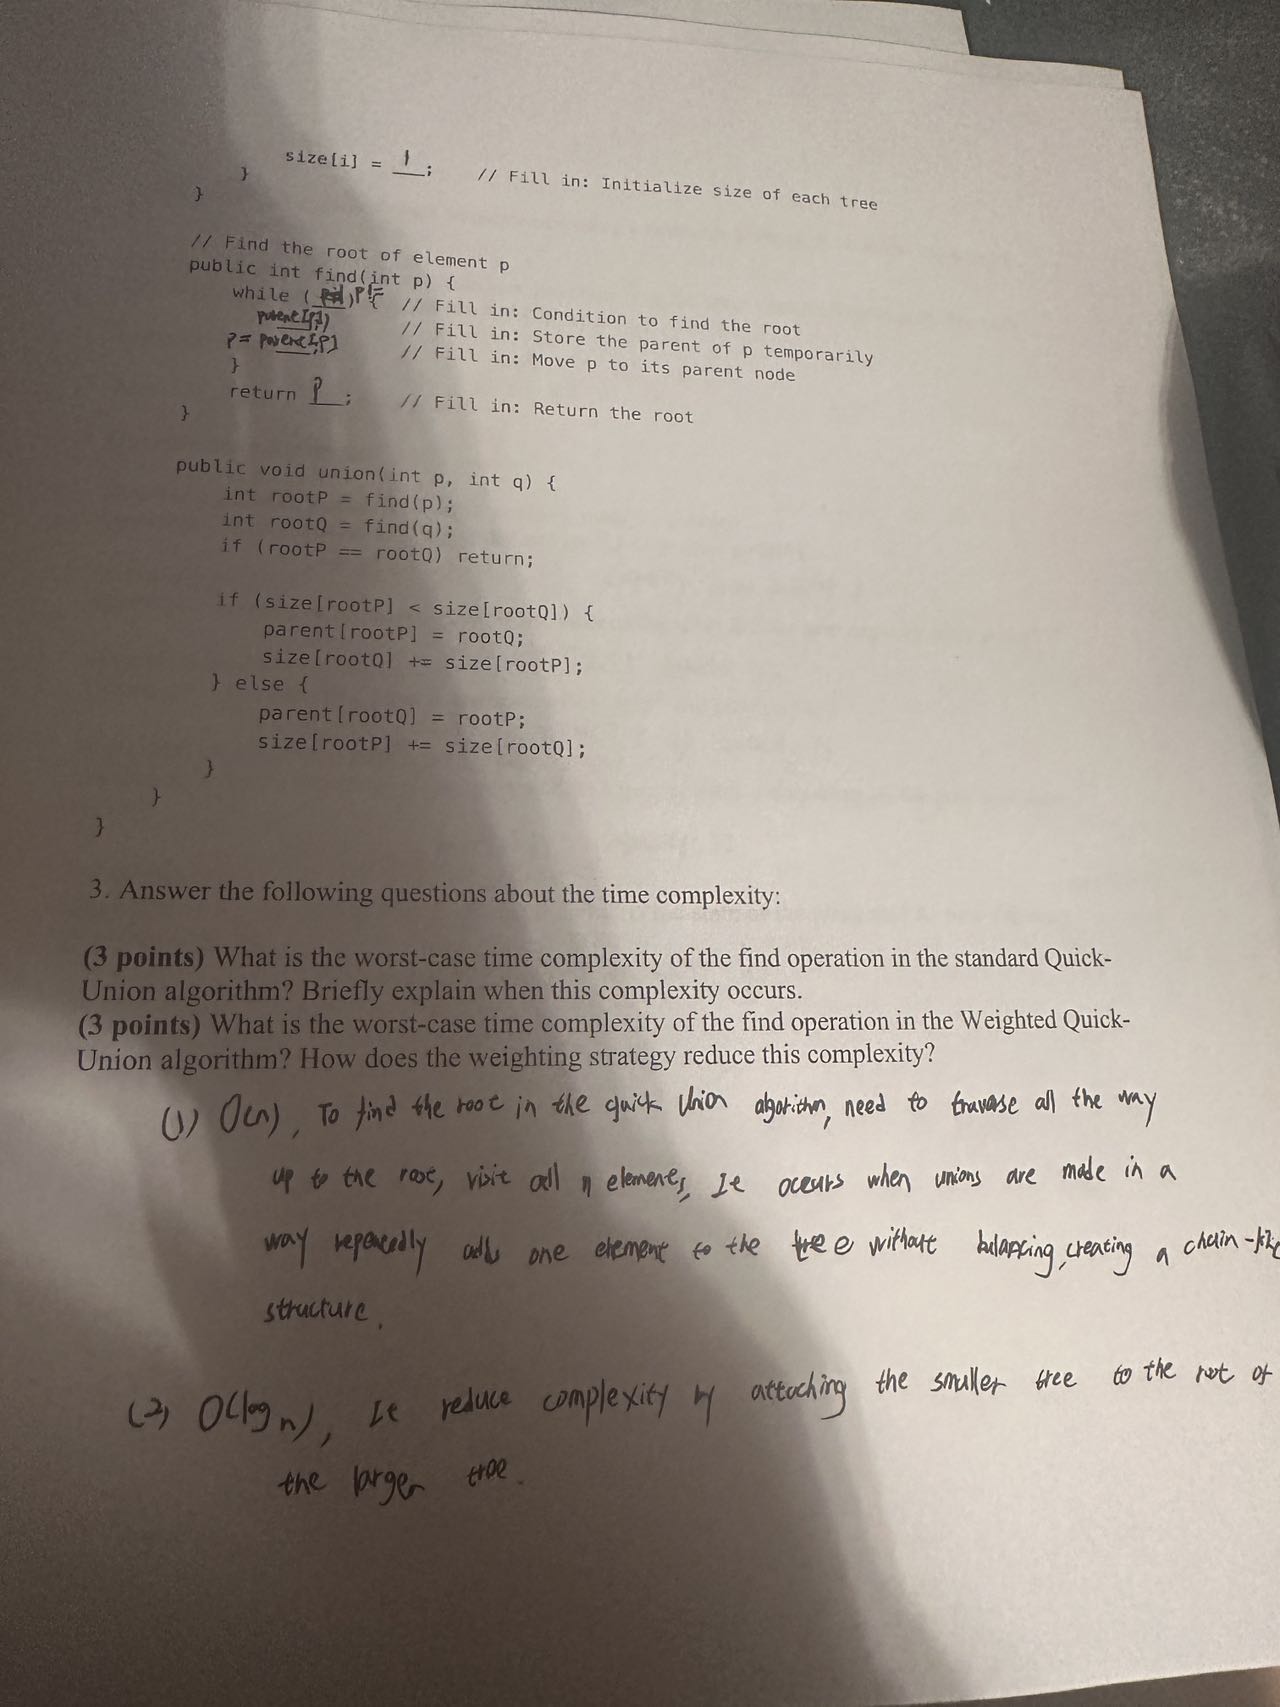 size[i] = 1; // Fill in: Initialize size of each tree
}
}
// Find the root of element p
public int find(int p) {
while ( ) p != { // Fill in: Condition to find the root
parent[p]) // Fill in: Store the parent of p temporarily
p = parent[p] // Fill in: Move p to its parent node
}
return p; // Fill in: Return the root
}
public void union(int p, int q) {
int rootP = find(p);
int rootQ = find(q);
if (rootP == rootQ) return;
if (size[rootP] < size[rootQ]) {
parent[rootP] = rootQ;
size[rootQ] += size[rootP];
} else {
parent[rootQ] = rootP;
size[rootP] += size[rootQ];
}
}
}
3. Answer the following questions about the time complexity:
(3 points) What is the worst-case time complexity of the find operation in the standard Quick-
Union algorithm? Briefly explain when this complexity occurs.
(3 points) What is the worst-case time complexity of the find operation in the Weighted Quick-
Union algorithm? How does the weighting strategy reduce this complexity?
(1) O(n), To find the root in the quick Union algorithm, need to traverse all the way
up to the root, visit all n elements, It occurs when unions are made in a
way repeatedly adds one element to the tree without balancing, creating a chain-like
structure.
(2) O(log n), It reduce complexity by attaching the smaller tree to the root of
the larger tree.